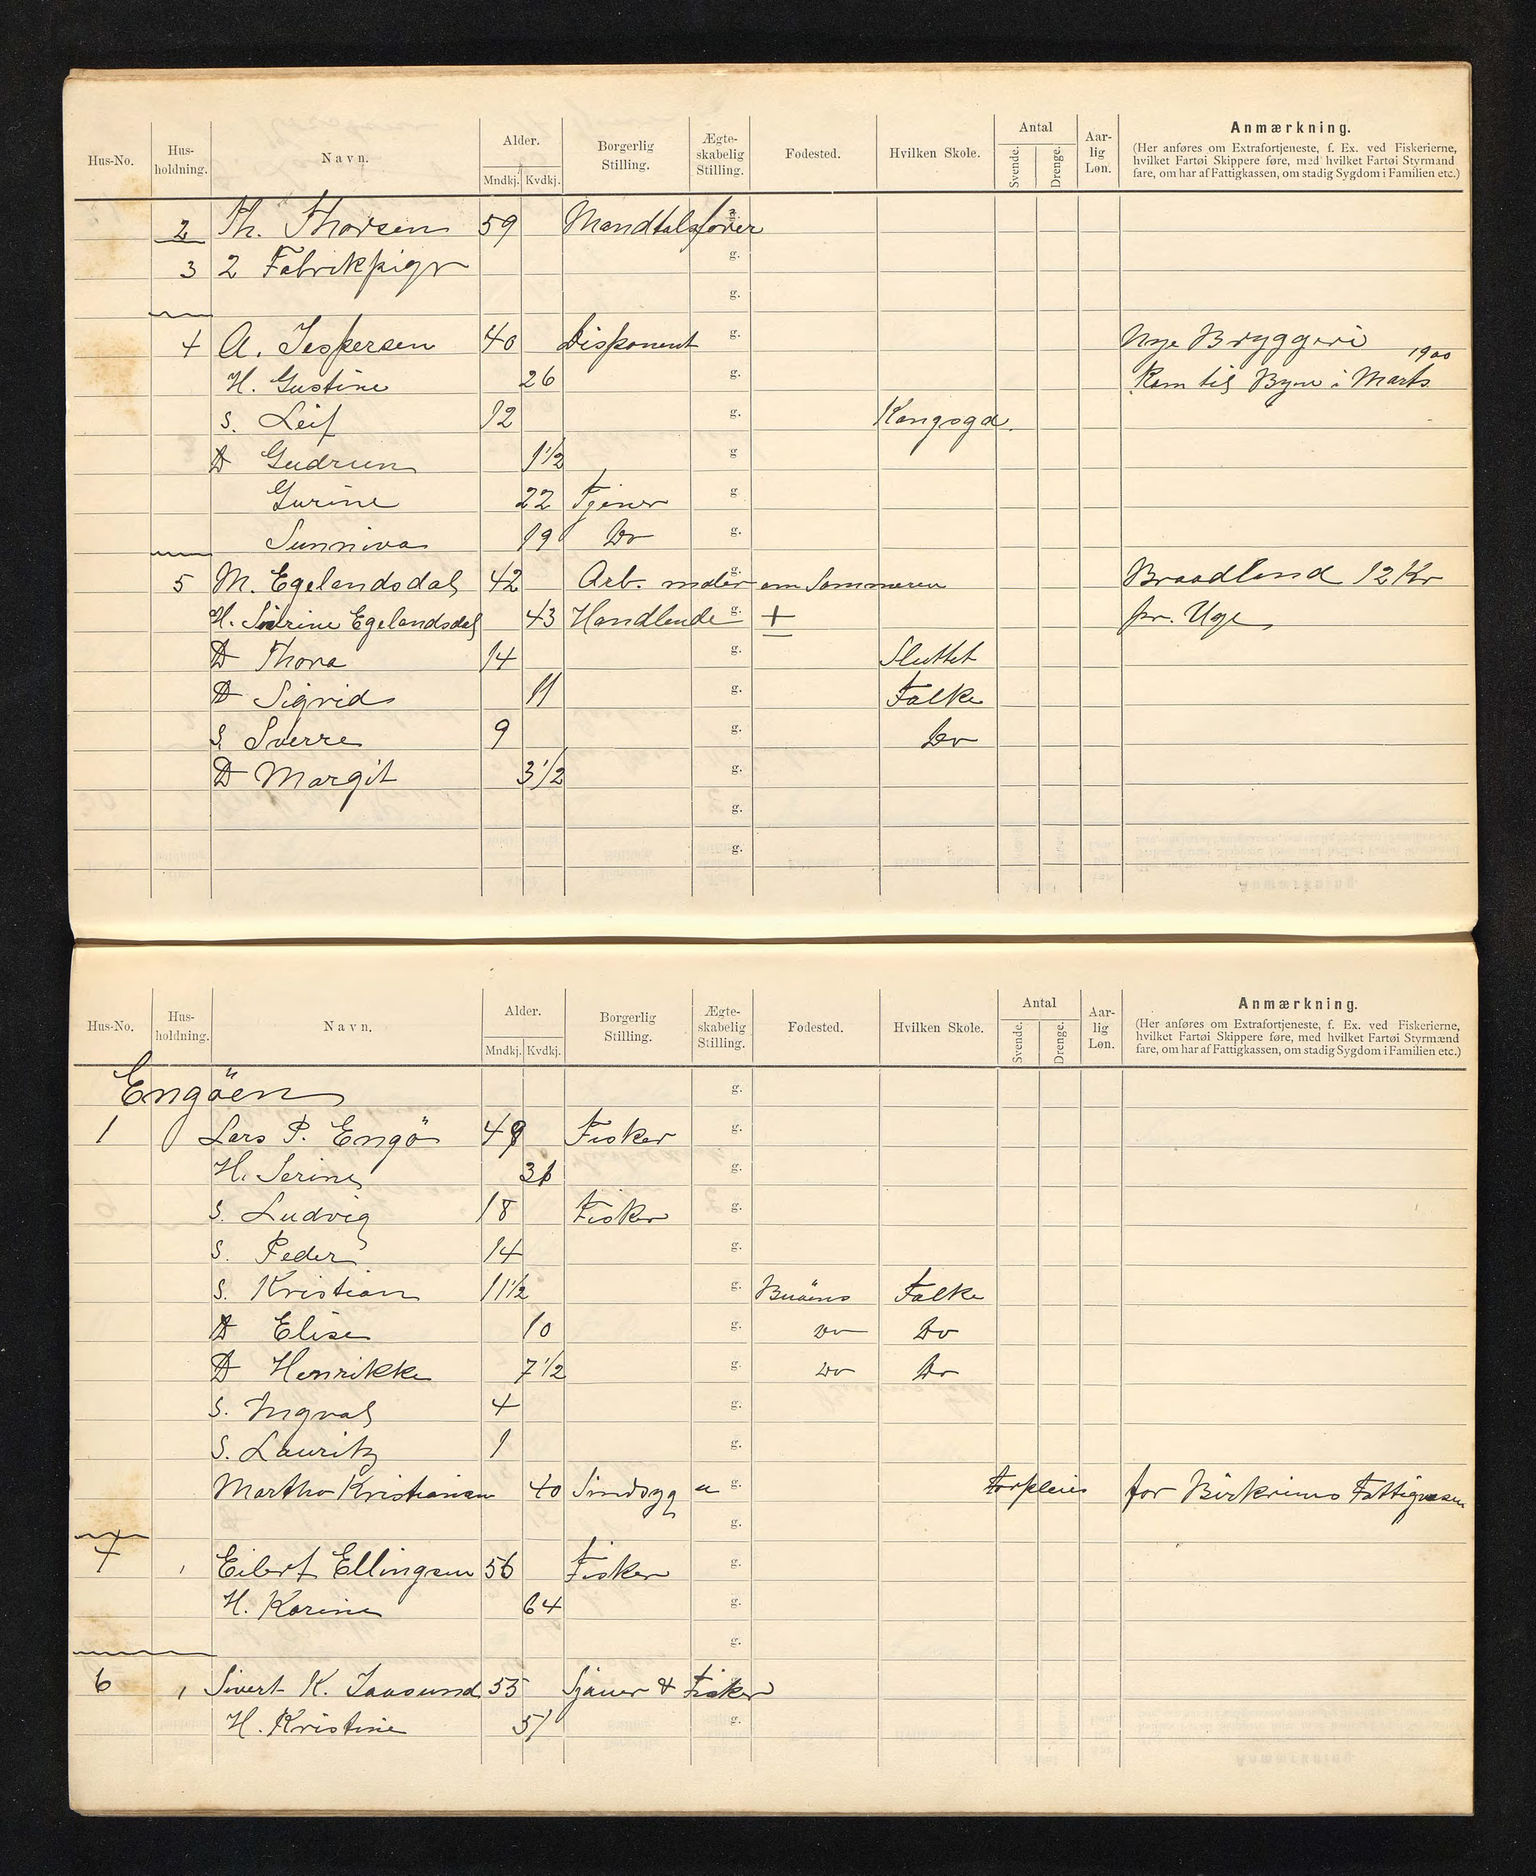 Hus-No. Hus-holdning. Navn. Alder. Mndkj. Kvdkj. Borgerlig Stilling. Ægte-skabelig Stilling. Fødested. Hvilken Skole. Antal Svende. Drenge. Aar-lig Løn. Anmærkning.
(Her anføres om Extrafortjeneste, f. Ex. ved Fiskerierne,
hvilket Fartøi Skippere føre, med hvilket Fartøi Styrmænd
fare, om har af Fattigkassen, om stadig Sygdom i Familien etc.)
2 Th. Thorsen 59 Mandtalsfører g.
3 2 Fabrikpiger g.
g.
4 A. Jespersen 40 Disponent g. Nye Bryggeri
H. Gustine 26 g. Kom til Byen i Marts 1900
S. Leif 12 g. Kongsgd.
D Gudrun 1 1/2 g
Gurine 22 Tjener g
Sunniva 19 Do g.
5 M. Egelandsdal 42 Arb. maler om Sommeren g. Braadland 12 Kr
H. Sirine Egelandsdal 43 Handlende g. + pr. Uge
D Thora 14 g. Sluttet
D Sigrid 11 g. Falke
S Sverre 9 g. Do
D Margit 3 1/2 g.
g.
g.
Hus-No. Hus-holdning. Navn. Alder. Mndkj. Kvdkj. Borgerlig Stilling. Ægte-skabelig Stilling. Fødested. Hvilken Skole. Antal Svende. Drenge. Aar-lig Løn. Anmærkning.
(Her anføres om Extrafortjeneste, f. Ex. ved Fiskerierne,
hvilket Fartøi Skippere føre, med hvilket Fartøi Styrmænd
fare, om har af Fattigkassen, om stadig Sygdom i Familien etc.)
Engöen g.
1 Lars P. Engö 49 Fisker g.
H. Serine 36 g.
S. Ludvig 18 Fisker g.
S. Peder 14 g.
S. Kristian 11 1/2 g. Buöens Falke
D Elise 10 g. Do Do
D Henrikke 7 1/2 g Do Do
S. Ingval 4 g.
S. Lauritz 1 g.
Martha Kristiansen 40 Sindsyg u g. Forpleies for Birkrims Fattigvæsen
g.
4 1 Eilert Ellingsen 56 Fisker g.
H. Karine 64 g.
g.
6 1 Sivert K. Jaasund 55 Sjauer & Fisker g.
H. Kristine 51 g.